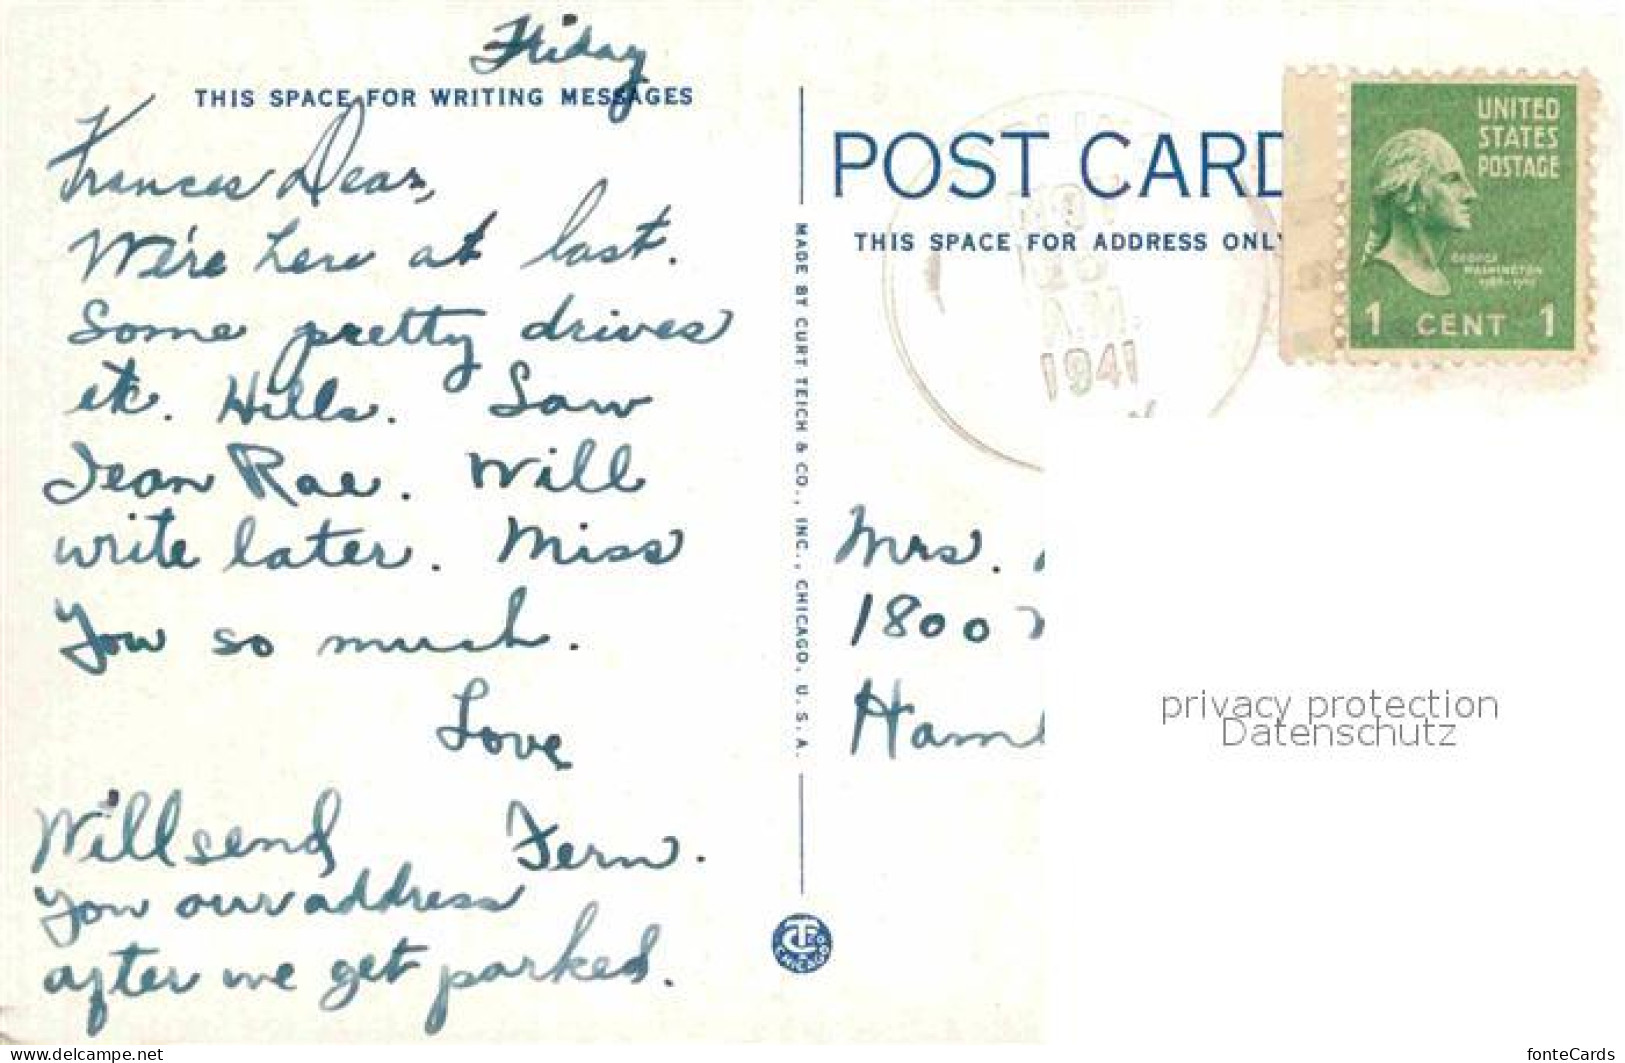 Friday
THIS SPACE FOR WRITING MESSAGES
Frances Dear,
We're here at last.
Some pretty drives
etc. Hills. Saw
Jean Rae. Will
write later. Miss
you so much.
Love
Fern.
Will send
you our address
after we get parked.
MADE BY CURT TEICH & CO., INC., CHICAGO, U.S.A.
CHICAGO
POST CARD
THIS SPACE FOR ADDRESS ONLY
A.M.
1941
UNITED
STATES
POSTAGE
GEORGE
WASHINGTON
1 CENT 1
Mrs.
1800
Ham
privacy protection
Datenschutz
www.delcampe.net
fonteCards